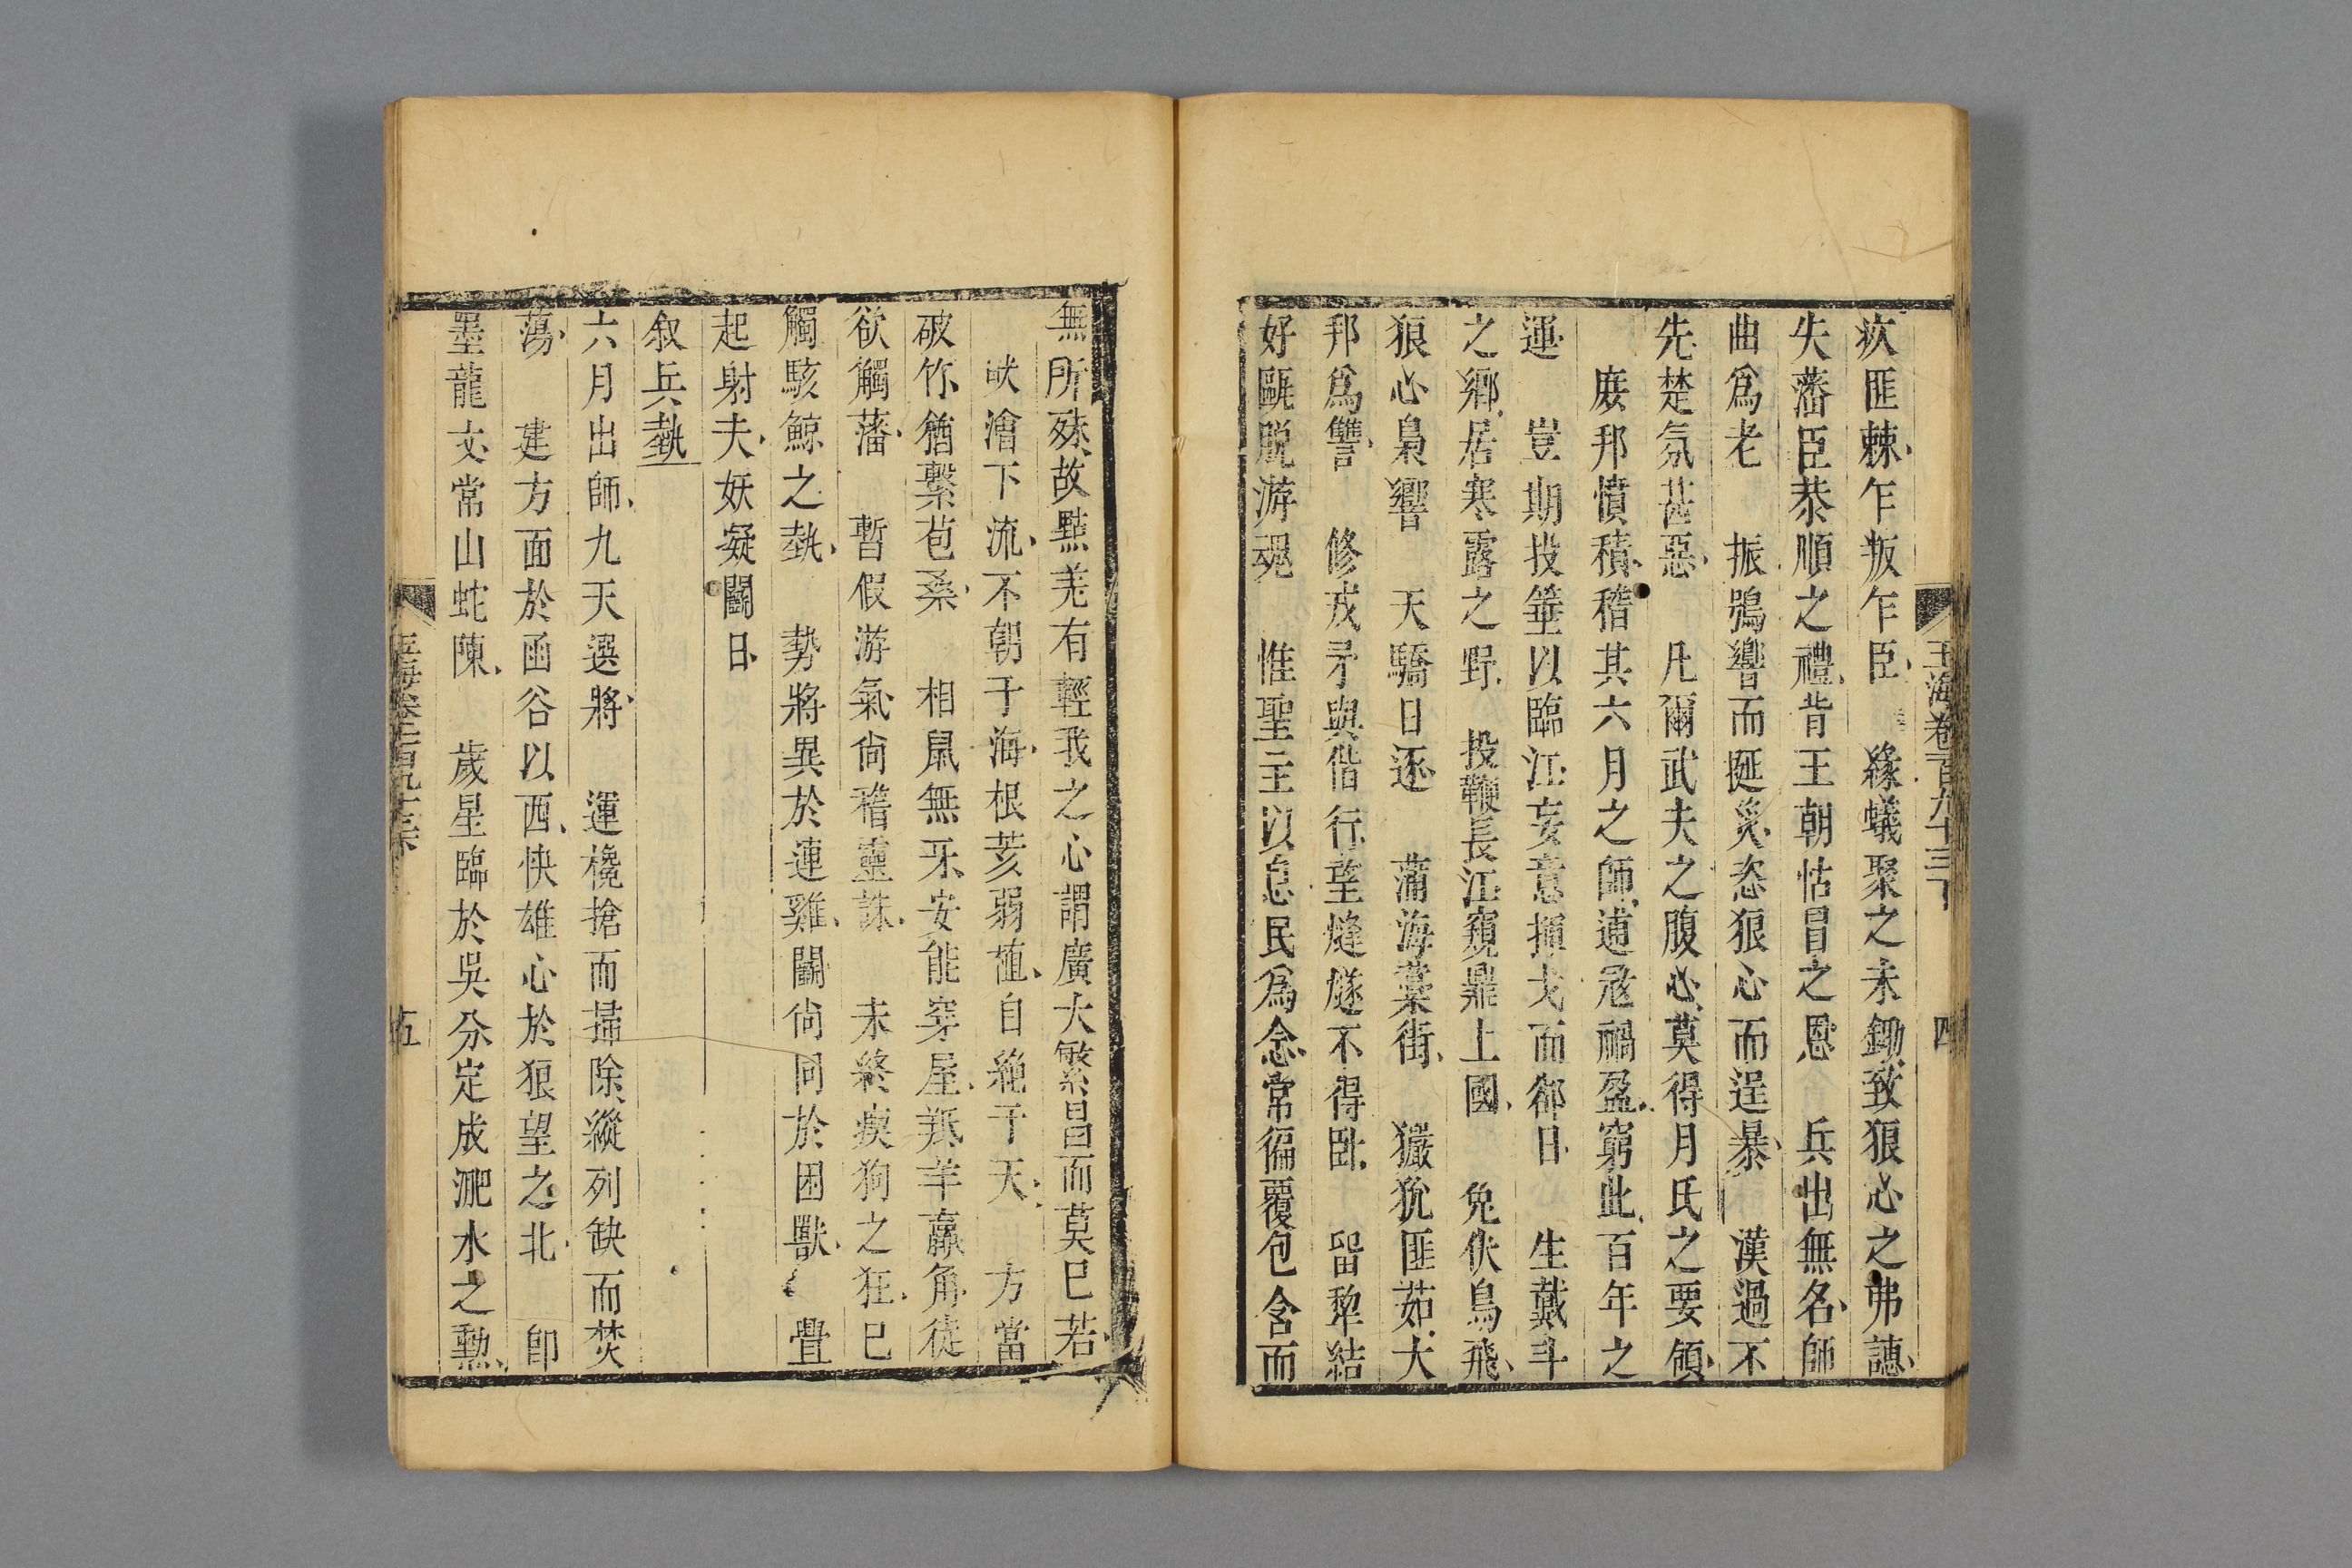 玉海卷一百九十三下　四
疚匪棘乍叛乍臣　緣蟻聚之未鋤致狼心之弗譓
失藩臣恭順之禮背王朝怙冒之恩　兵出無名師
曲爲老　振鴞響而挻災恣狼心而逞暴　漢過不
先楚氛甚惡　凡爾武夫之腹心莫得月氏之要領
庶邦憤積稽其六月之師逋冦禍盈窮此百年之
運　豈期投箠以臨江妄意揮戈而郤日　生戴斗
之鄉居寒露之野　投鞭長江窺鼎上國　兔伏鳥飛
狼心梟響　天驕日逐　蒲海藁街　玁狁匪茹大
邦爲讐　修戎矛與偕行望烽燧不得臥　留犂結
好甌脫游魂　惟聖主以息民爲念常徧覆包含而
無所殊故黠羌有輕我之心謂廣大繁昌而莫巳若
畎澮下流不朝于海根荄弱植自絶于天　方當
破竹猶繫苞桑　相鼠無牙安能穿屋羝羊羸角徒
欲觸藩　暫假游氣尙稽靈誅　未終瘈狗之狂巳
觸駭鯨之埶　勢將異於連雞鬭尙同於困獸　疊
起射夫妖凝鬭日
叙兵埶
六月出師九天選將　運欃搶而掃除縱列缺而焚
蕩　建方面於函谷以西快雄心於狼望之北　卽
墨龍文常山蛇陳　歲星臨於吳分定成淝水之勳
五